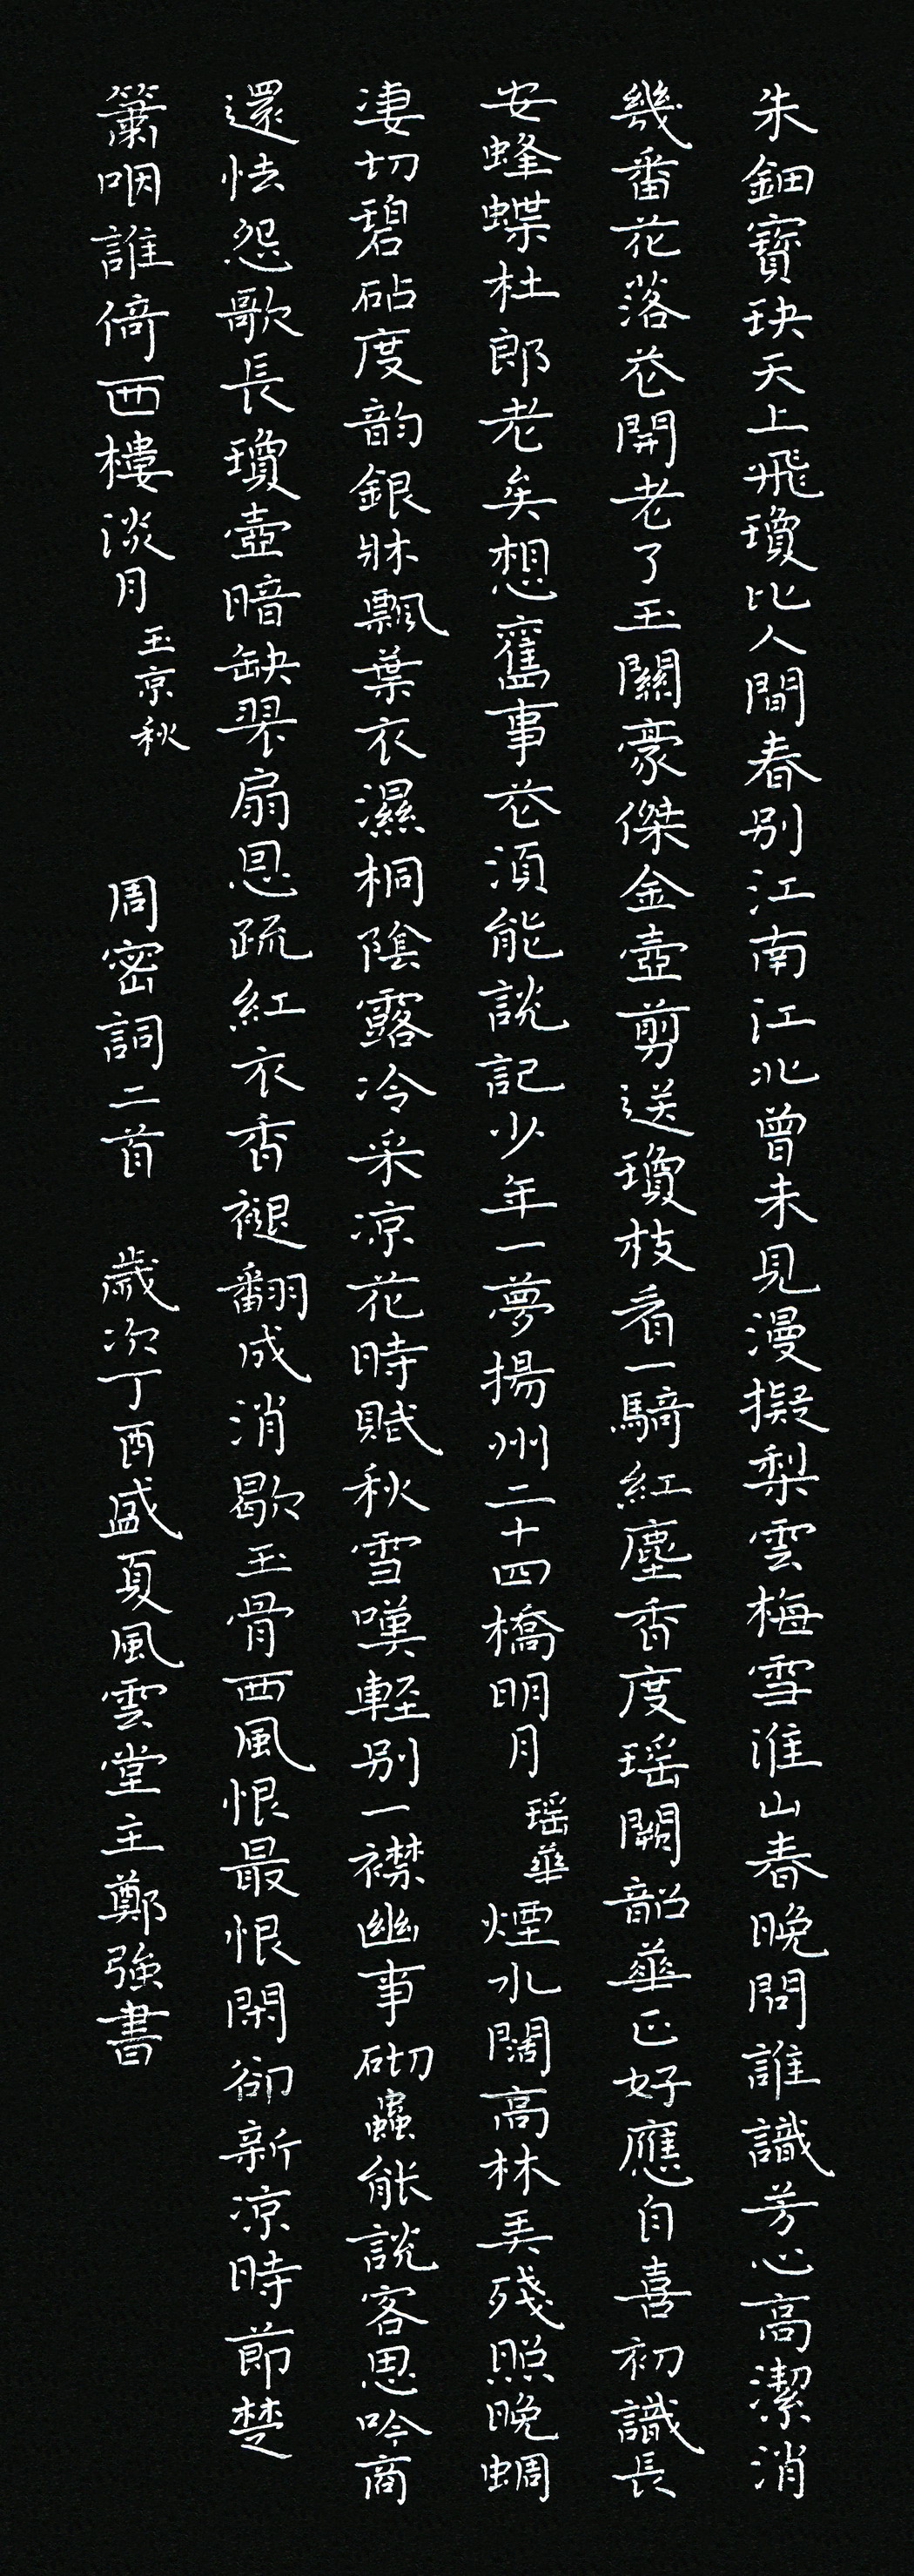 朱鈿寶玦天上飛瓊比人間春别江南江北曾未見漫擬梨雲梅雪淮山春晚問誰識芳心高潔消
幾番花落花開老了玉關豪傑金壺剪送瓊枝看一騎紅塵香度瑶闕韶華正好應自喜初識長
安蜂蝶杜郎老矣想舊事花須能說記少年一夢揚州二十四橋明月 瑶華 煙水闊高林弄殘照晚蜩
凄切碧砧度韵銀牀飄葉衣濕桐陰露冷采凉花時賦秋雪嘆輕别一襟幽事砌蟲能說客思吟商
還怯怨歌長瓊壺暗缺翠扇恩疏紅衣香褪翻成消歇玉骨西風恨最恨閑卻新凉時節楚
簫咽誰倚西樓淡月 玉京秋 周密詞二首 歲次丁酉盛夏風雲堂主鄭強書